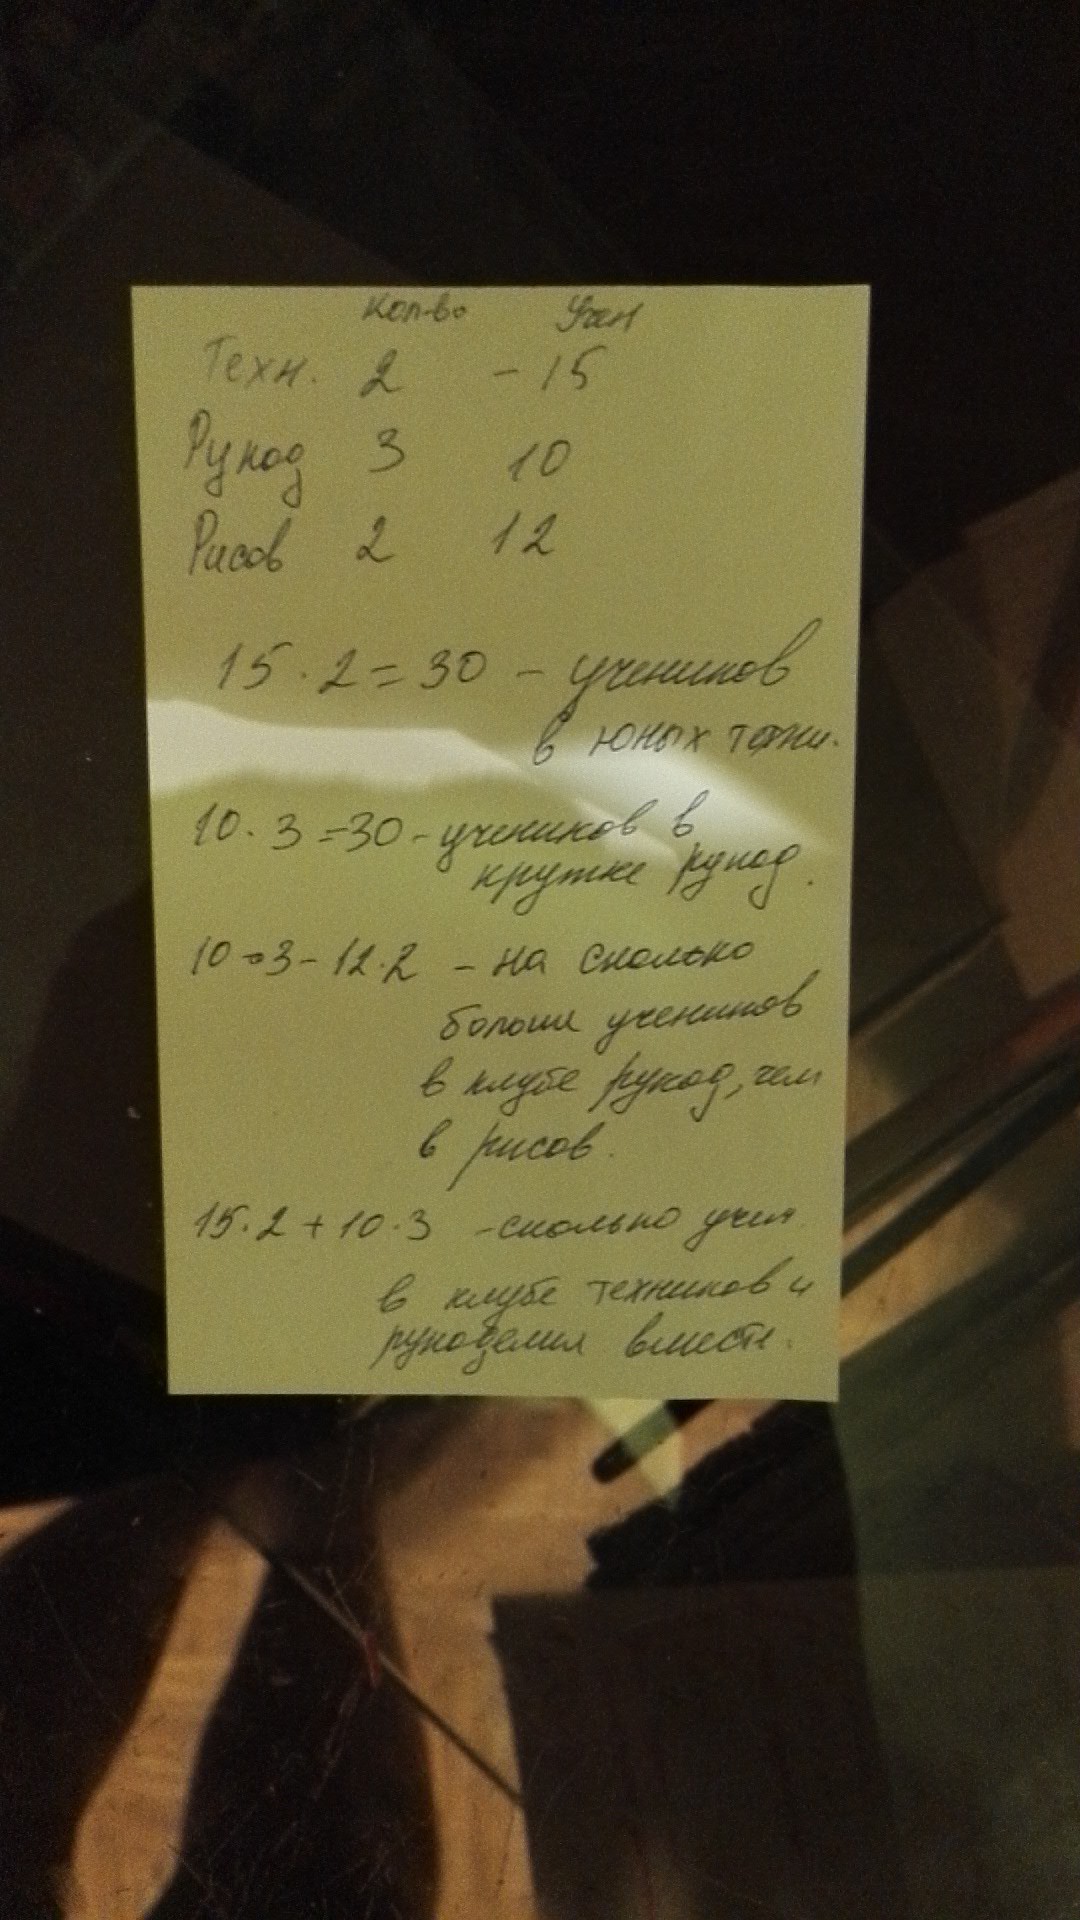 Кол-во Учен
Техн. 2 - 15
Рукод 3 10
Рисов 2 12
15 · 2 = 30 - учеников
в юных техни.
10 · 3 = 30 - учеников в
кружке рукод.
10 · 3 - 12 · 2 - на сколько
больше учеников
в клубе рукод, чем
в рисов.
15 · 2 + 10 · 3 - сколько учен.
в клубе техников и
рукоделия вместе.